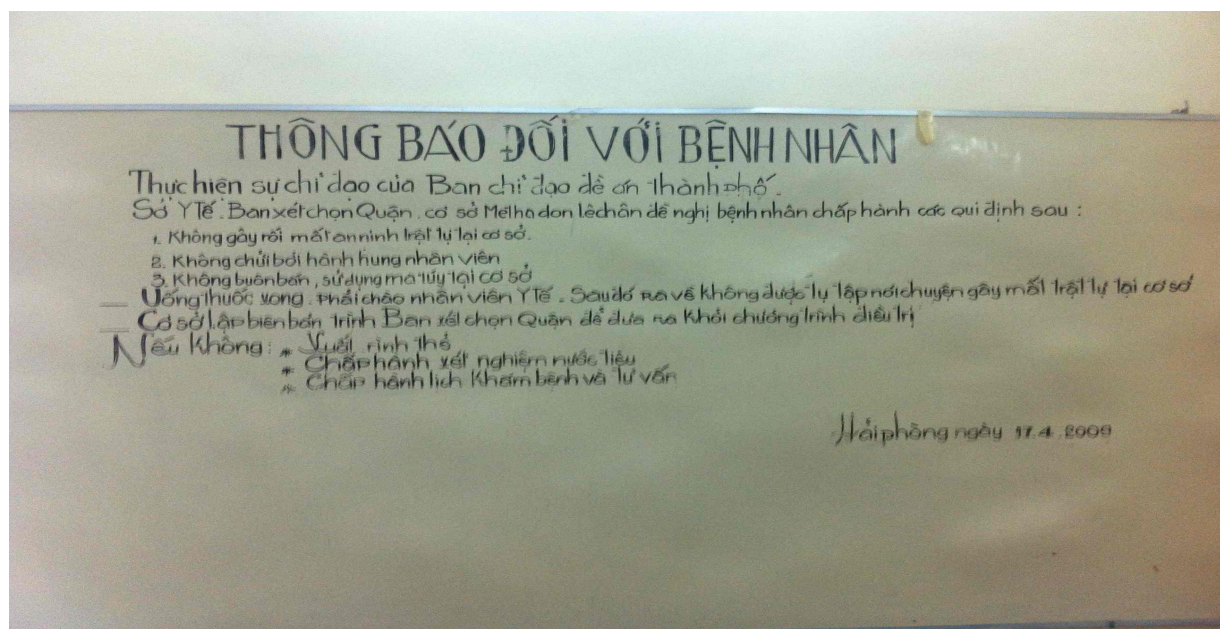 THÔNG BÁO ĐỐI VỚI BỆNH NHÂN
Thực hiện sự chỉ đạo của Ban chỉ đạo đề án thành phố.
Sở Y Tế. Ban xét chọn Quận. cơ sở Methadon lêchân đề nghị bệnh nhân chấp hành các qui định sau :
1. Không gây rối mất an ninh trật tự tại cơ sở.
2. Không chửi bới hành hung nhân viên
3. Không buôn bán, sử dụng ma túy tại cơ sở
— Uống thuốc xong. Phải chào nhân viên Y Tế. Sau đó ra về không được tụ tập nói chuyện gây mất trật tự tại cơ sở
— Cơ sở lập biên bản trình Ban xét chọn Quận để đưa ra khỏi chương trình điều trị
Nếu Không: * Xuất rình thẻ
* Chấp hành xét nghiệm nước tiểu
* Chấp hành lịch Khám bệnh và tư vấn
Hải phòng ngày 17.4.2009